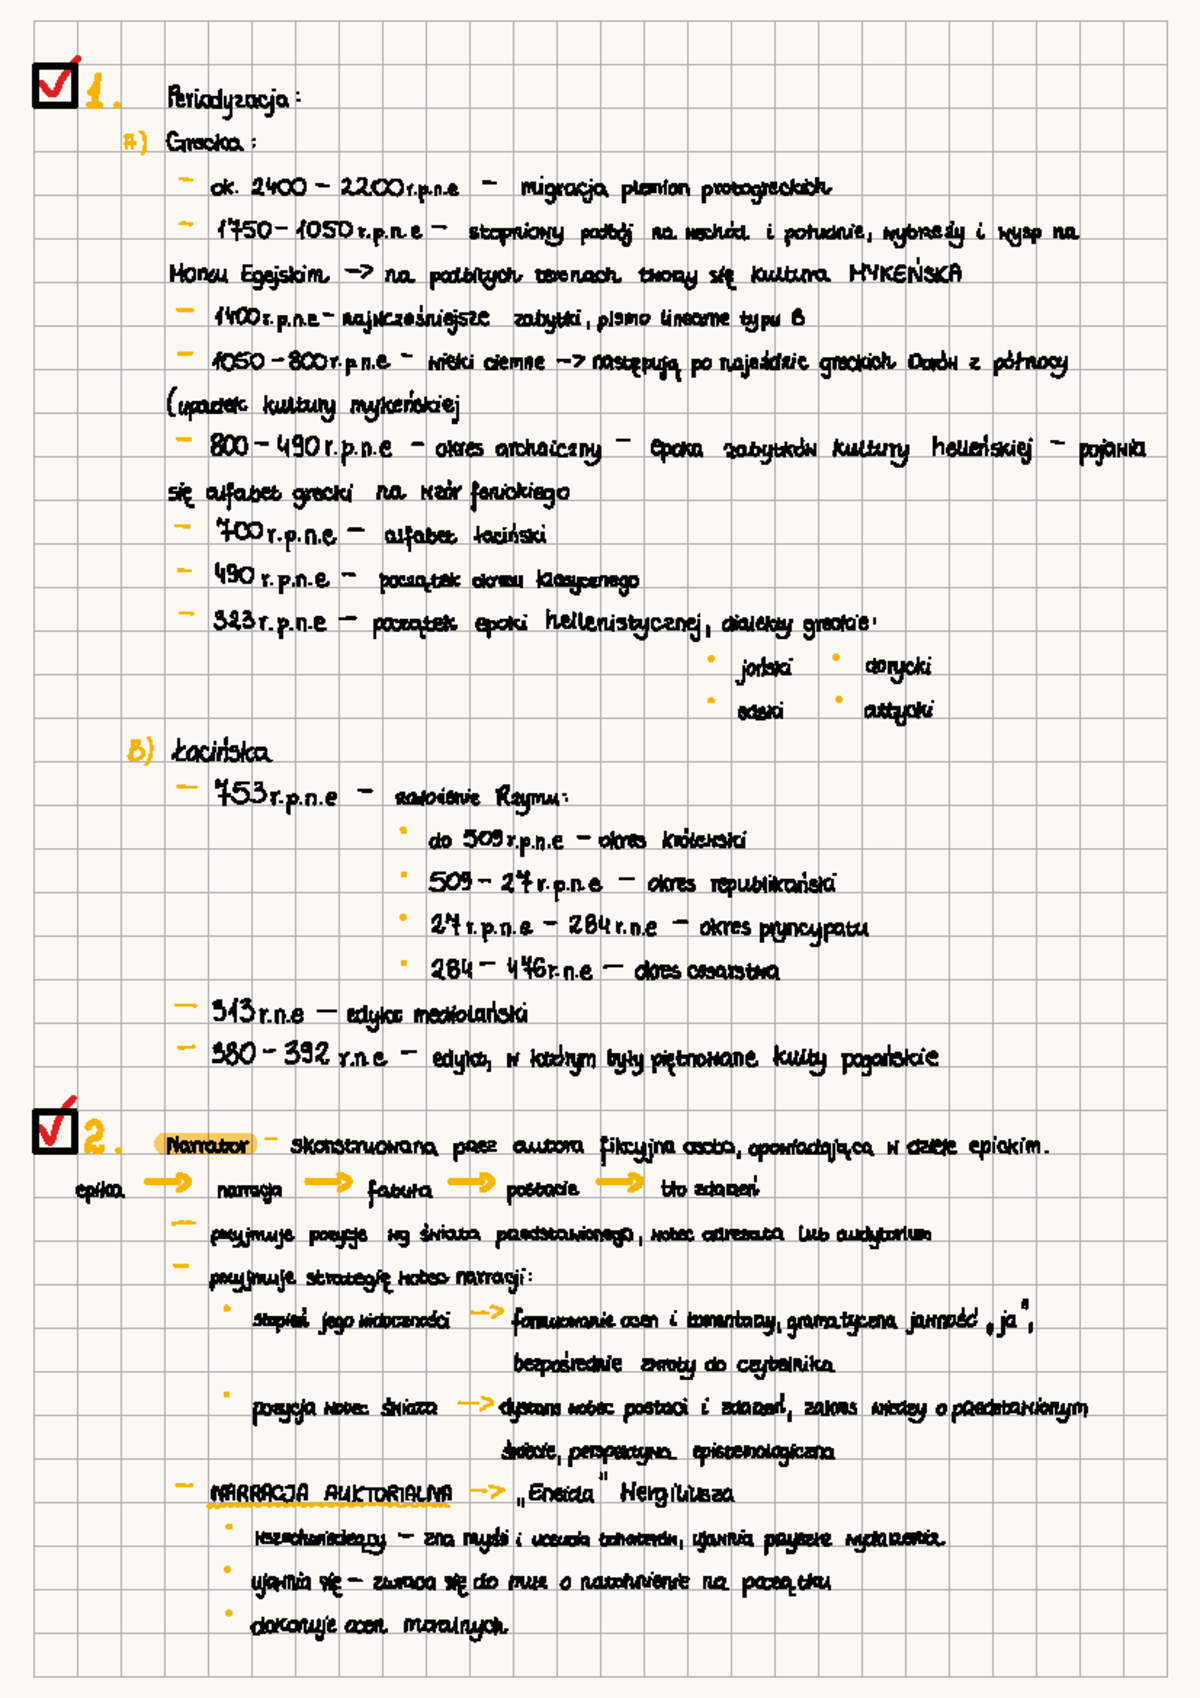 1. Periodyzacja:
A) Grecka:
- ok. 2400 - 2200 r.p.n.e - migracja plemion protogreckich
- 1750 - 1050 r.p.n.e - stopniowy podbój na wschód i południe, wybrzeży i wysp na
Morzu Egejskim -> na podbitych terenach tworzy się kultura MYKEŃSKA
- 1400 r.p.n.e - najwcześniejsze zabytki, pismo linearne typu B
- 1050 - 800 r.p.n.e - wieki ciemne -> następują po najeździe greckich Dorów z północy
(upadek kultury mykeńskiej
- 800 - 490 r.p.n.e - okres archaiczny - epoka zabytków kultury helleńskiej - pojawia
się alfabet grecki na wzór fenickiego
- 700 r.p.n.e - alfabet łaciński
- 490 r.p.n.e - początek okresu klasycznego
- 323 r.p.n.e - początek epoki hellenistycznej, dialekty greckie:
• joński • dorycki
• eolski • attycki
B) Łacińska
- 753 r.p.n.e - założenie Rzymu:
• do 509 r.p.n.e - okres królewski
• 509 - 27 r.p.n.e - okres republikański
• 27 r.p.n.e - 284 r.n.e - okres pryncypatu
• 284 - 476 r.n.e - okres cesarstwa
- 313 r.n.e - edykt mediolański
- 380 - 392 r.n.e - edykt, w którym były piętnowane kulty pogańskie
2. Narrator - skonstruowana przez autora fikcyjna osoba, opowiadająca w dziele epickim.
epika -> narracja -> fabuła -> postacie -> tło zdarzeń
- przyjmuje pozycje wg świata przedstawionego, wobec adresata lub audytorium
- przyjmuje strategię wobec narracji:
• stopień jego widoczności -> formułowanie ocen i komentarzy, gramatyczna jawność „ja",
bezpośrednie zwroty do czytelnika
• pozycja wobec świata -> dystans wobec postaci i zdarzeń, zakres wiedzy o przedstawionym
świecie, perspektywa epistemologiczna
- NARRACJA AUKTORIALNA -> „Eneida" Wergiliusza
• wszechwiedzący - zna myśli i uczucia bohaterów, ujawnia przyszłe wydarzenia
• ujawnia się - zwraca się do muz o natchnienie na początku
• dokonuje ocen moralnych